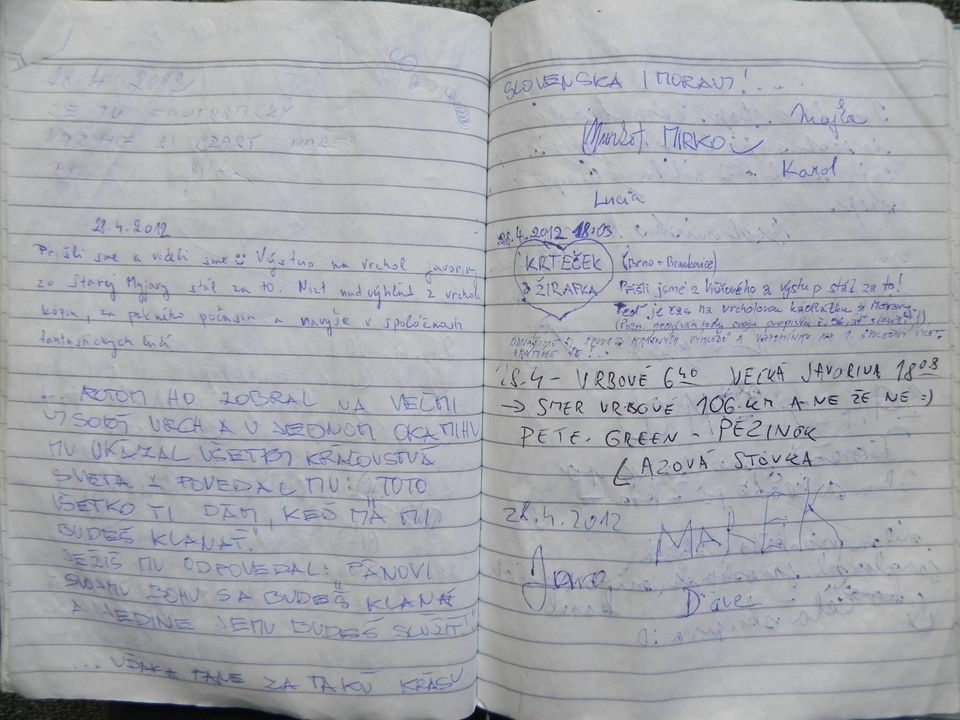 28.4 2012
JE TU FANTASTICKY
28.4.2012
Prišli sme a videli sme Výstup na vrchol Javoriny
zo Starej Myjavy stál za to. Niet nad výhľad z vrchol
kopca, za pekného počasia a navyše v spoločnosti
fantastických ľudí
... POTOM HO ZOBRAL NA VEĽMI
VYSOKÝ VRCH A V JEDNOM OKAMIHU
MU UKÁZAL VŠETKY KRÁĽOVSTVÁ
SVETA A POVEDAL MU: "TOTO
VŠETKO TI DÁM, KEĎ MA MI
BUDEŠ KLAŇAŤ."
JEŽIŠ MU ODPOVEDAL: "PÁNOVI
SVOJMU BOHU SA BUDEŠ KLAŇAŤ
A JEDINE JEMU BUDEŠ SLÚŽIŤ!"
... VĎAKA PANE ZA TAKÚ KRÁSU
SLOVENSKA I MORAVY!...
Majka
MIRKO
Karol
Lucia
28.4.2012 18:03
KRTEČEK (Brno + Brankovice)
& ŽIRAFKA Přišli jsme z Višňového a výstup stál za to!
Teď je čas na vrcholovou
28.4 - VRBOVÉ 6 40 VEĽKÁ JAVORINA 18 03
→ SMER VRBOVÉ 106 km A NE ŽE NE :)
PETE. GREEN - PEZINOK
LAZOVÁ STOVKA
28.4.2012
MAREK
Jano,
Dávez